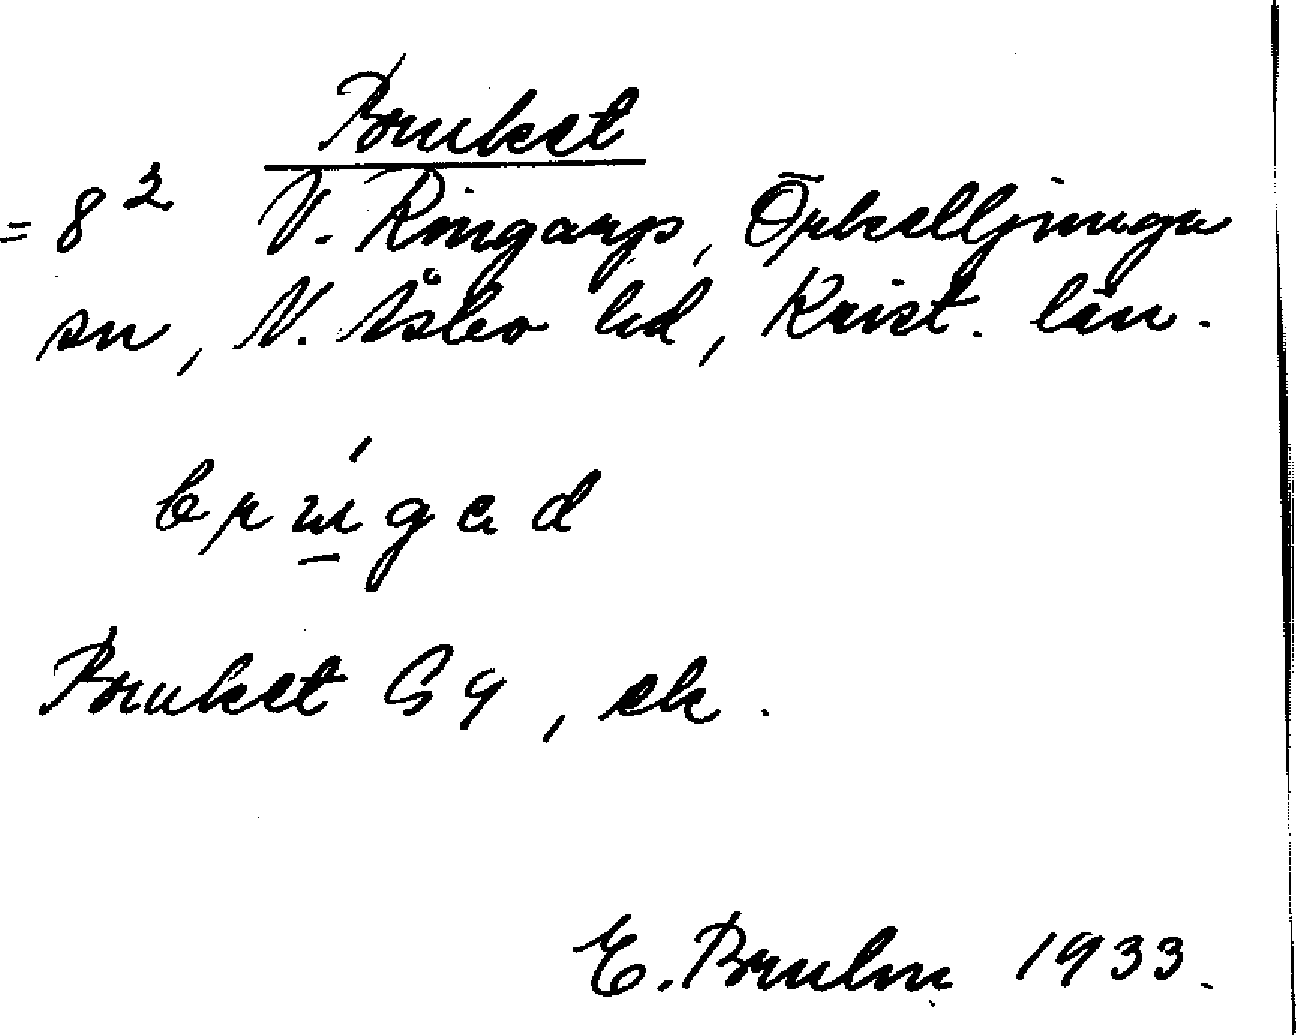 Bruket
= 8² V. Ringarp, Örkelljunga
sn, N. Åsbo hd, Krist. län.
brúgəd
Bruket Gg, ek.
E. Bruhn 1933.